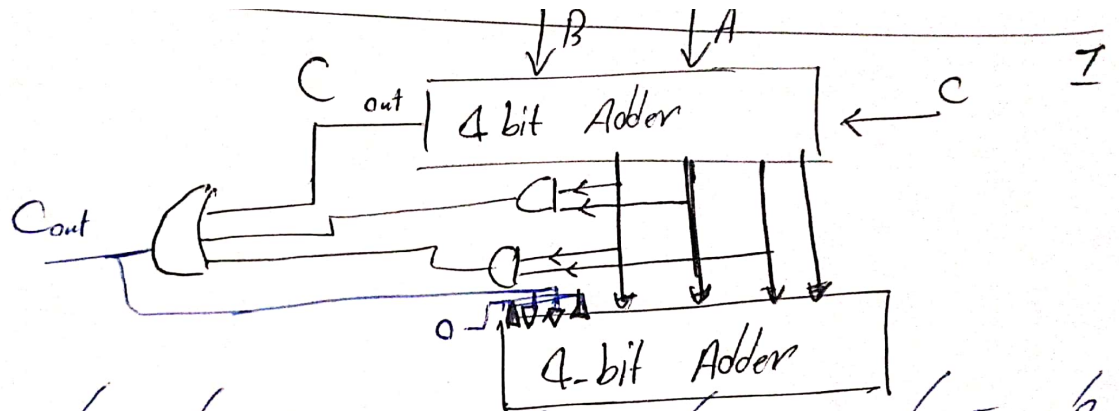 B A
I
C out
4 bit Adder
C
Cout
0
4-bit Adder